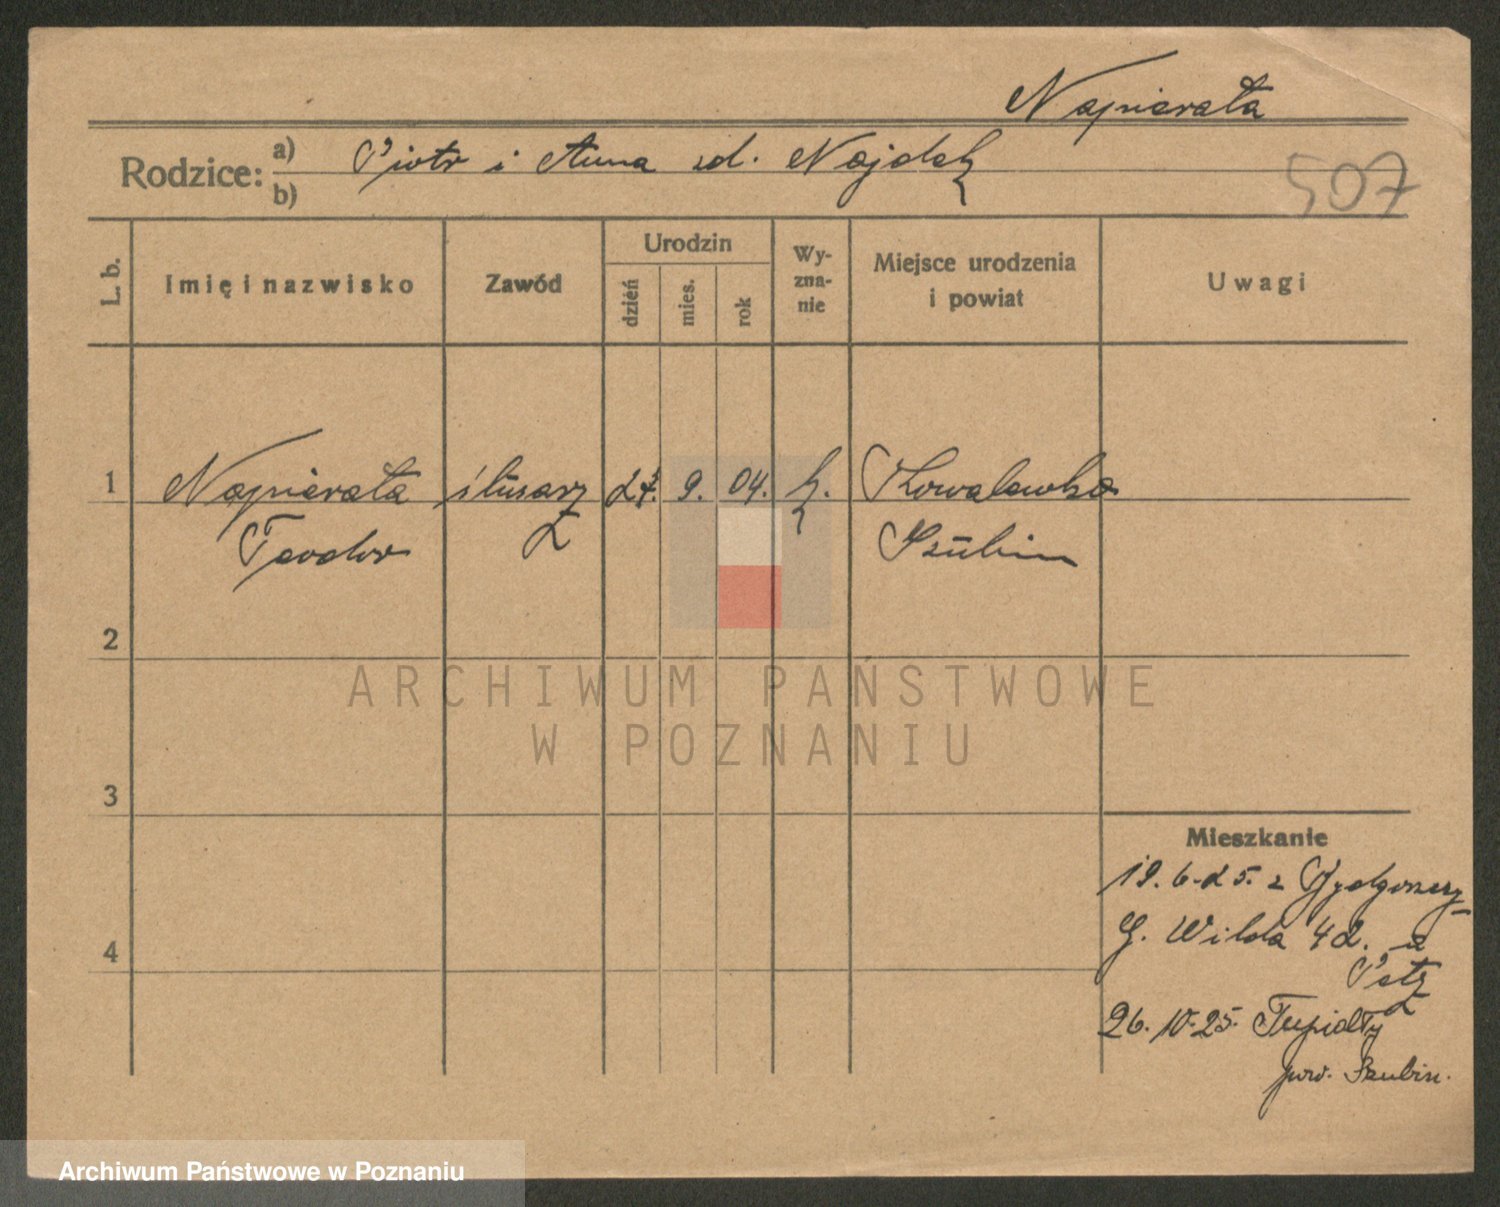 Napierała
Rodzice: a) Piotr i Anna zd. Nojdek
b)
507
L. b.
Imię i nazwisko
Zawód
Urodzin
dzień
mies.
rok
Wy-
zna-
nie
Miejsce urodzenia
i powiat
Uwagi
1 Napierała ślusarz 24. 9. 04. k. Kowalewko
Teodor Szubin
2
ARCHIWUM PAŃSTWOWE
W POZNANIU
3
Mieszkanie
19.6.25. z Bydgoszczy
G. Wilda 42. u
4
26.10.25.
pow. Szubin.
Archiwum Państwowe w Poznaniu